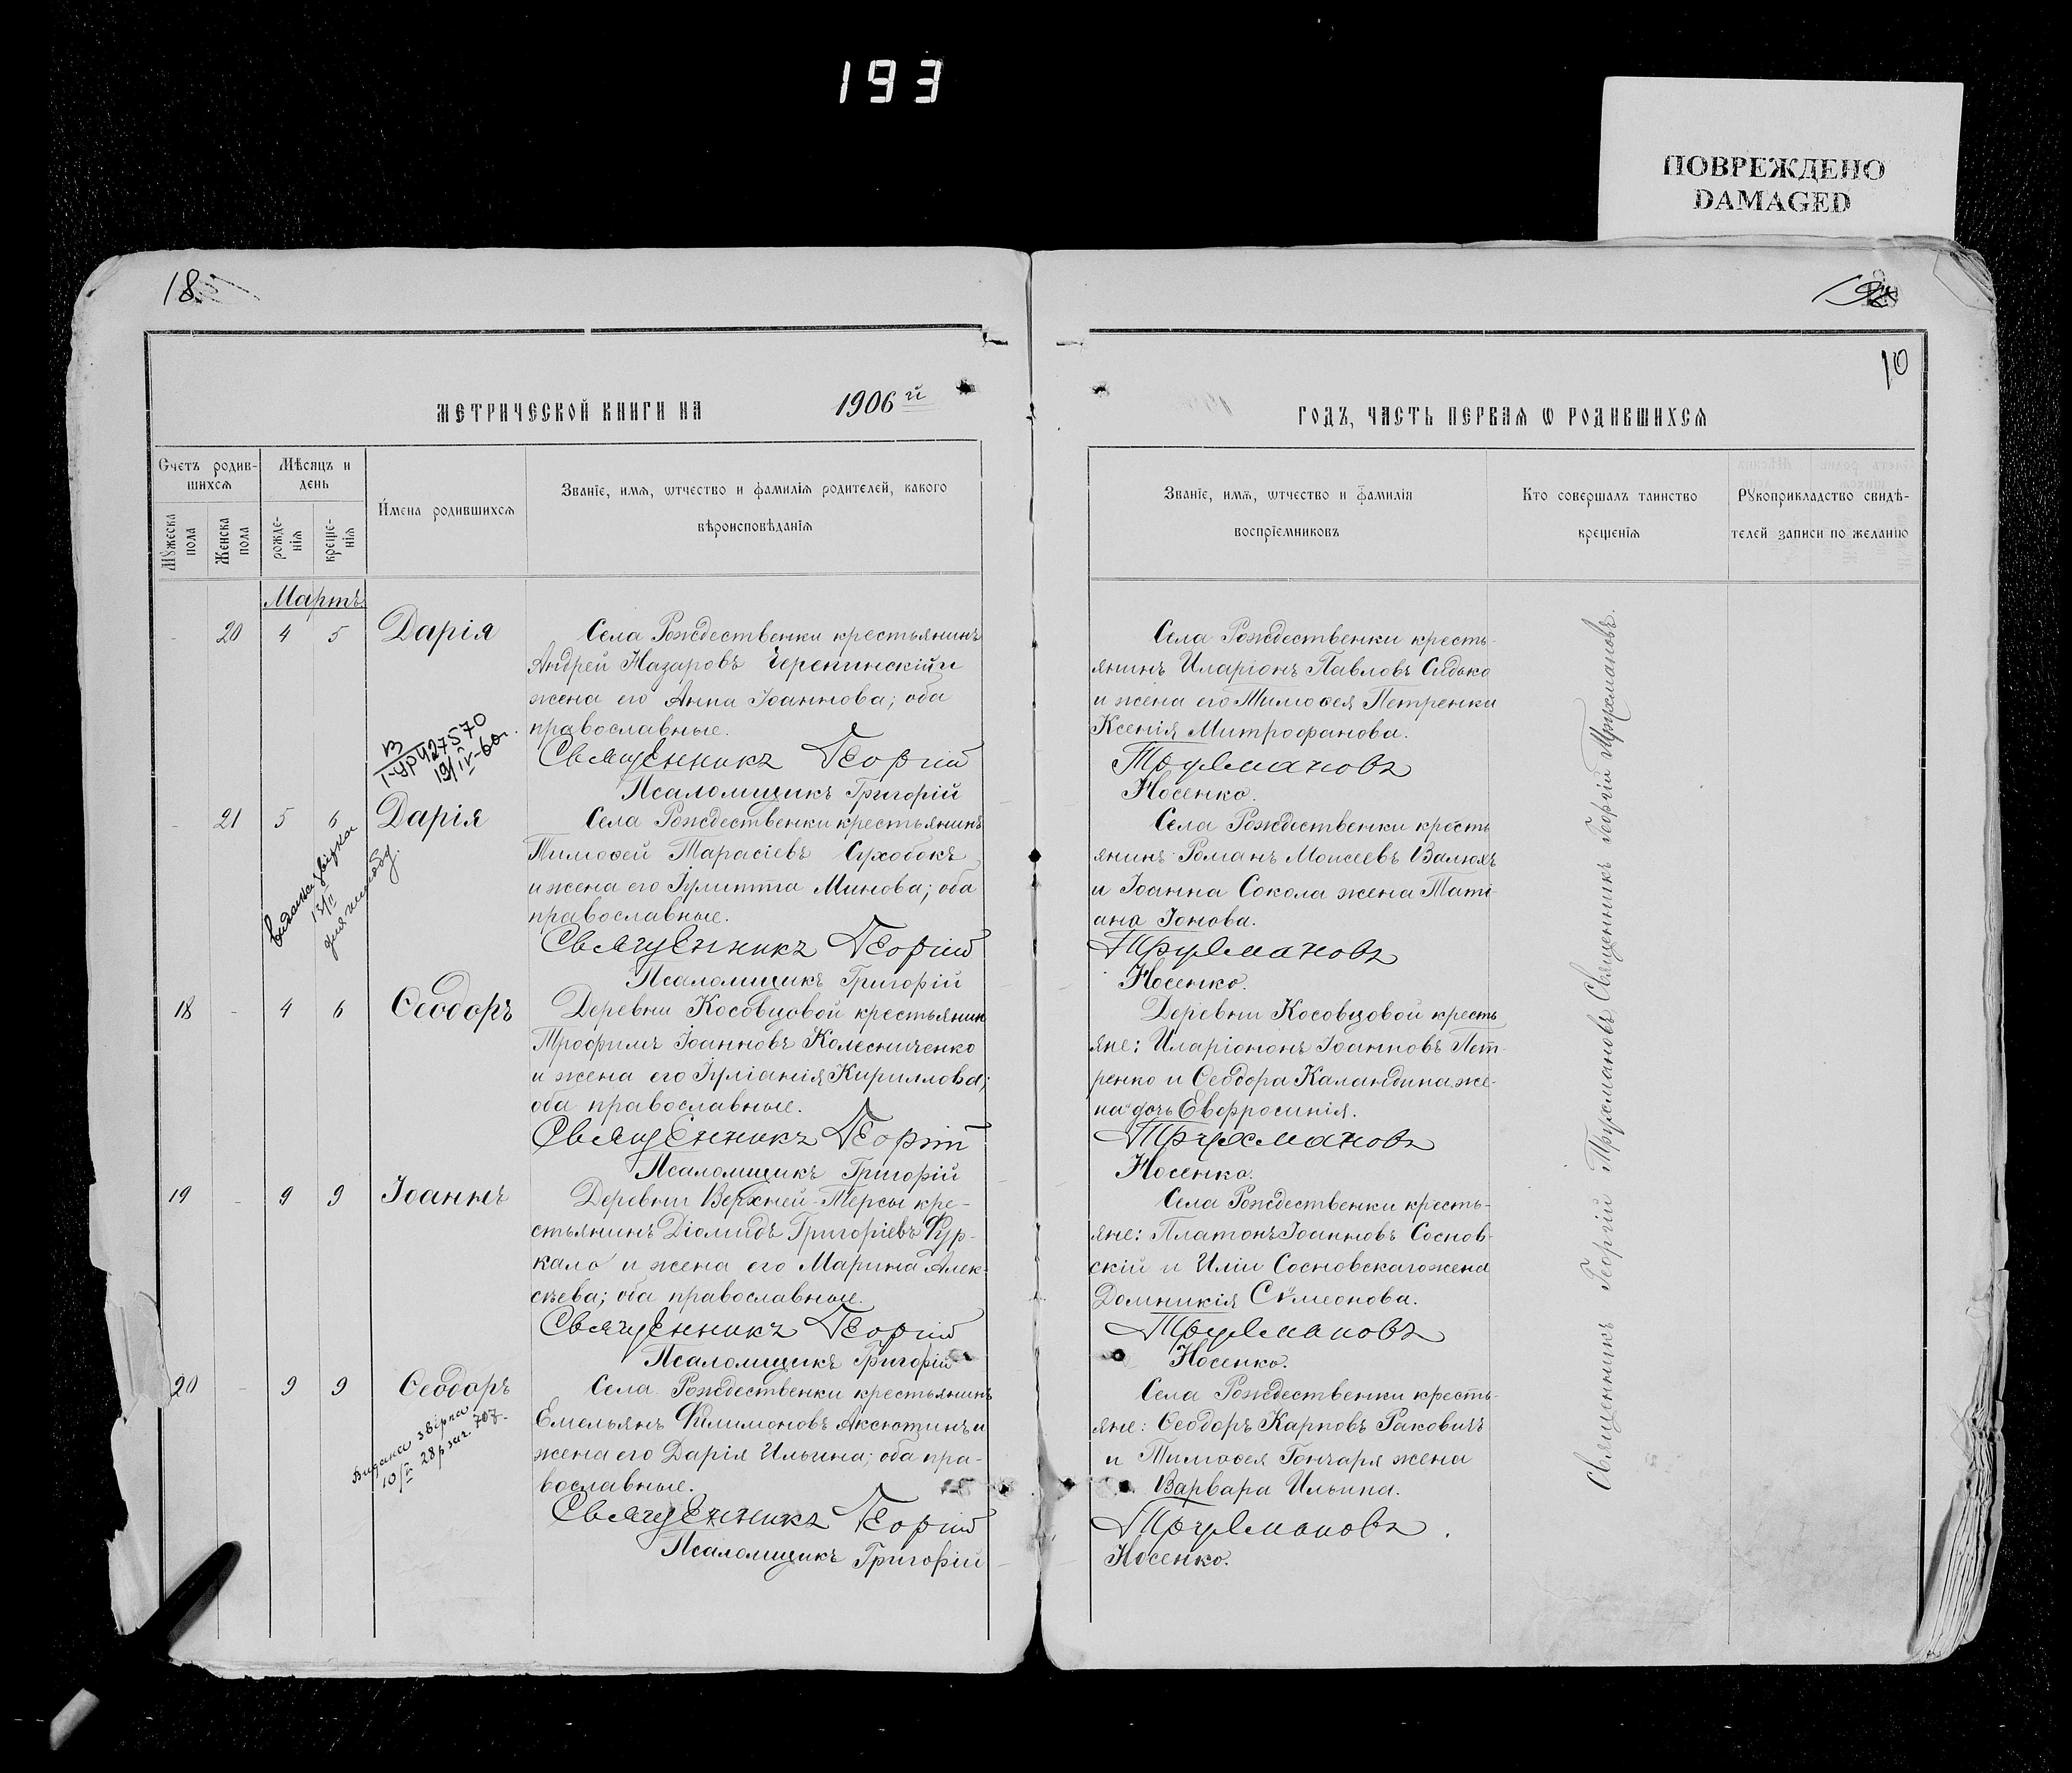 193
ПОВРЕЖДЕНО
DAMAGED
18
10
МЕТРИЧЕСКОЙ КНИГИ НА 1906 й
ГОДЪ, ЧАСТЬ ПЕРВАѦ Ѡ РОДИВШИХСѦ
Счетъ родив-
шихсѧ
Мѣсяцъ и
день
Мꙋжеска
пола
Женска
пола
рожде-
нія
креще-
нія
Имена родившихсѧ
Званіе, имѧ, ѡтчество и фамилія родителей, какого
вѣроисповѣданія
Званіе, имѧ, ѡтчество и фамилія
воспріемниковъ
Кто совершалъ таинство
крещенія
Рꙋкоприкладство свидѣ-
телей записи по желанію
Мартъ
20 4 5 Дарія
Села Рождественки крестьянинъ
Андрей Назаровъ Черепинскій и
жена его Анна Іоаннова; оба
православные.
Священникъ Георгій
Псаломщикъ Григорій
Села Рождественки кресть-
янинъ Иларіонъ Павловъ Сидько
и жена его Тимоѳея Петренка
Ксенія Митрофанова.
Трухмановъ
Носенко.
427570
19/IV-60г.
21 5 6 Дарія
Села Рождественки крестьянинъ
Тимоѳей Тарасіевъ Сухобокъ
и жена его Іулитта Минова; оба
православные.
Священникъ Георгій
Псаломщикъ Григорій
Села Рождественки кресть
янинъ Романъ Моисеевъ Валюхъ
и Іоанна Сокола жена Тати-
ана Іонова.
Трухмановъ
Носенко.
18 - 4 6 Ѳеодоръ
Деревни Косовцовой крестьянин
Трофимъ Іоанновъ Колесниченко
и жена его Іуліанія Кириллова;
оба православные.
Священникъ Георгій
Псаломщикъ Григорій
Деревни Косовцовой кресть
яне: Иларіононъ Іоанновъ Пет-
ренко и Ѳеодора Каландина же-
на дочь Евфросинія.
Трухмановъ
Носенко.
19 - 9 9 Іоаннъ
Деревни Верхней-Терсы кре-
стьянинъ Діомидъ Григоріевъ Фур-
кало и жена его Марина Алек-
сѣева; оба православные.
Священникъ Георгій
Псаломщикъ Григорій
Села Рождественки кресть-
яне: Платонъ Іоанновъ Соснов-
скій и Иліи Сосновскаго жена
Домникія Сѵмеонова.
Трухмановъ
Носенко.
20 - 9 9 Ѳеодоръ
Села Рождественки крестьянинъ
Емельянъ Филимоновъ Аксютинъ и
жена его Дарія Ильина; оба пра-
вославные.
Священникъ Георгій
Псаломщикъ Григорій
Села Рождественки кресть-
яне: Ѳеодоръ Карповъ Раковичъ
и Тимоѳея Гончаря жена
Варвара Ильина.
Трухмановъ.
Носенко.
Священникъ Георгій Трухмановъ Священникъ Георгій Трухмановъ.